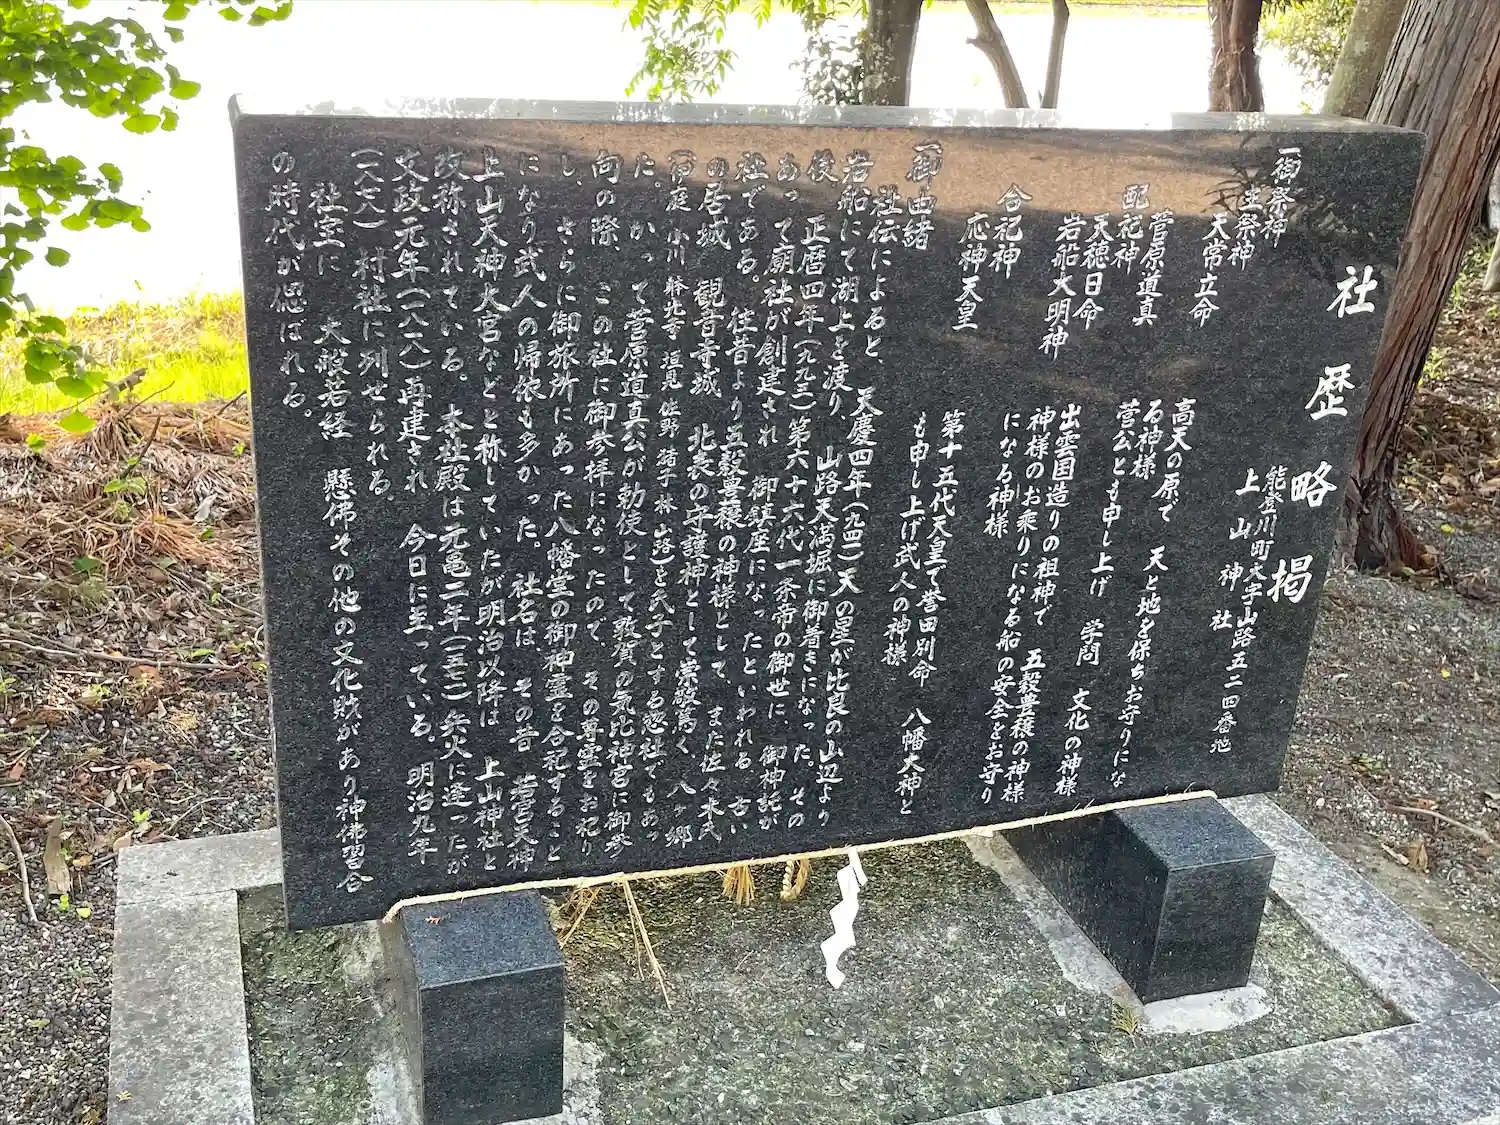 社歴略掲
能登川町大字山路五二四番地
上山神社
一御祭神
主祭神
天常立命
高天の原で 天と地を保ちお守りにな
る神様
配祀神
菅原道真
菅公とも申し上げ 学問 文化の神様
天穂日命
出雲国造りの祖神で 五穀豊穣の神様
岩船大明神
神様のお乗りになる船の安全をお守り
になる神様
合祀神
応神天皇
第十五代天皇で誉田別命 八幡大神と
も申し上げ武人の神様
一御由緒
社伝によると、 天慶四年(九四一)天の星が比良の山辺より
岩船にて湖上を渡り、 山路天満堀に御着きになった。その
後、正暦四年(九九三)第六十六代一条帝の御世に、御神託が
あって廟社が創建され 御鎮座になったといわれる 古い
社である。 往昔より五穀豊穣の神様として、 また佐々木氏
の居城 観音寺城 北表の守護神として崇敬篤く 八ヶ郷
(伊庭 小川 躰光寺 垣見 佐野 猪子 林 山路)を氏子とする惣社でもあっ
た。かって菅原道真公が勅使として敦賀の気比神宮に御参
向の際、 この社に御参拝になったので その尊霊をお祀り
し、さらに御旅所にあった八幡堂の御神霊を合祀すること
になり武人の帰依も多かった。 社名は その昔 若宮天神
上山天神大宮などと称していたが明治以降は 上山神社と
改称されている。 本社殿は元亀二年(一五七一)兵火に逢ったが
文政元年(一八一八)再建され 今日に至っている。 明治九年
(一八七八) 村社に列せられる。
社宝に 大般若経 懸佛その他の文化財があり神佛習合
の時代が偲ばれる。